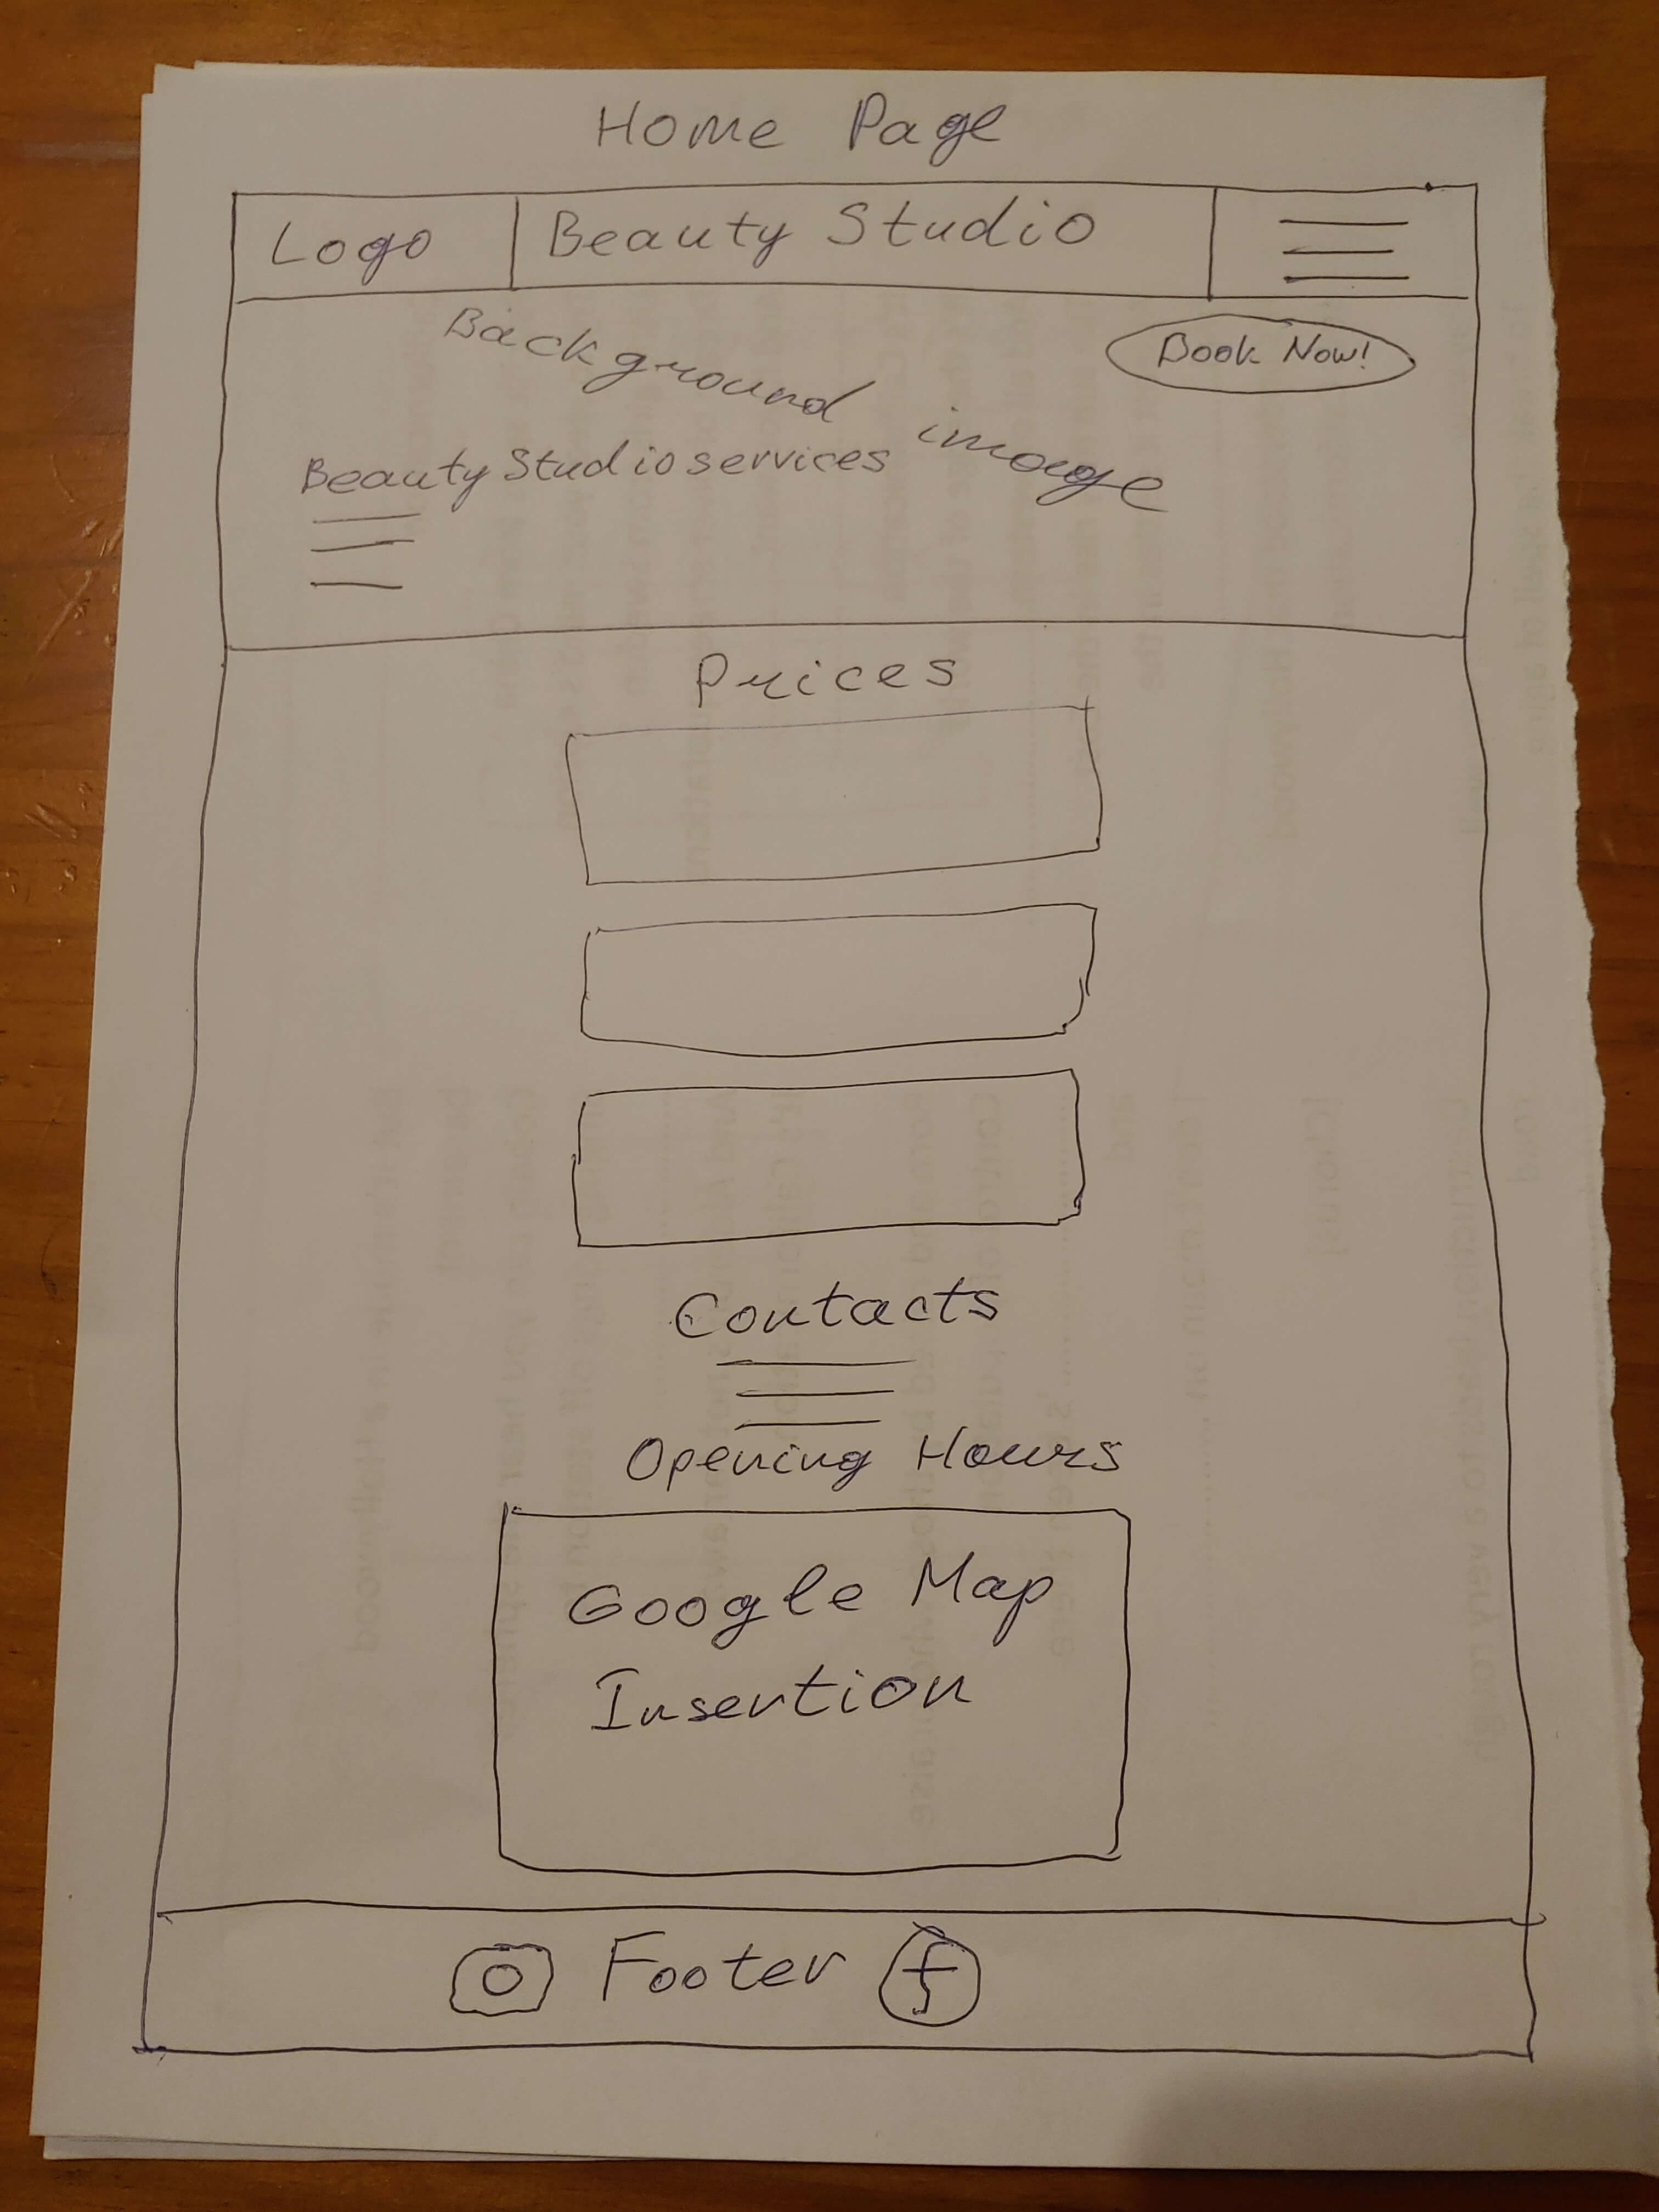 Home Page
Logo
Beauty Studio
Book Now!
Background image
Beauty Studio services
Prices
Contacts
Opening Hours
Google Map
Insertion
Footer
f